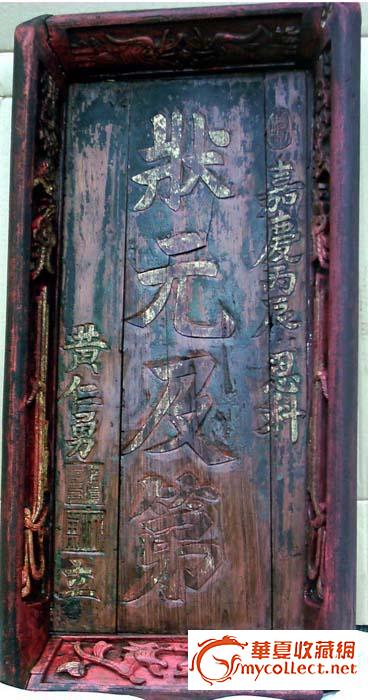 嘉慶丙辰恩科
狀元及第
黄仁勇
立
華夏收藏網
mycollect.net